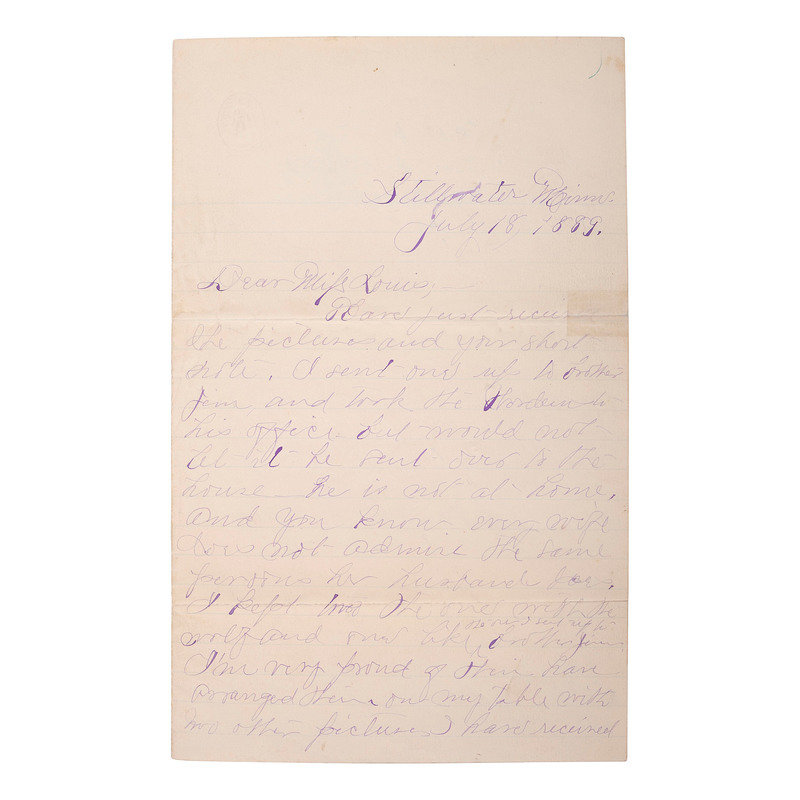 Stillwater Minn.
July 18, 1889.
Dear Miss Louis, —
Have just
the pictures and your short
note. I sent one up to brother
Jim, and took the Warden to
his office but would not
let it be sent over to the
house he is not at home,
And you know every wife
does not admire the same
persons her husband does.
I kept two the one with the
wolf and one like the one I sent up to brother Jim,
I'm very proud of them have
arranged them on my table with
two other pictures I have received